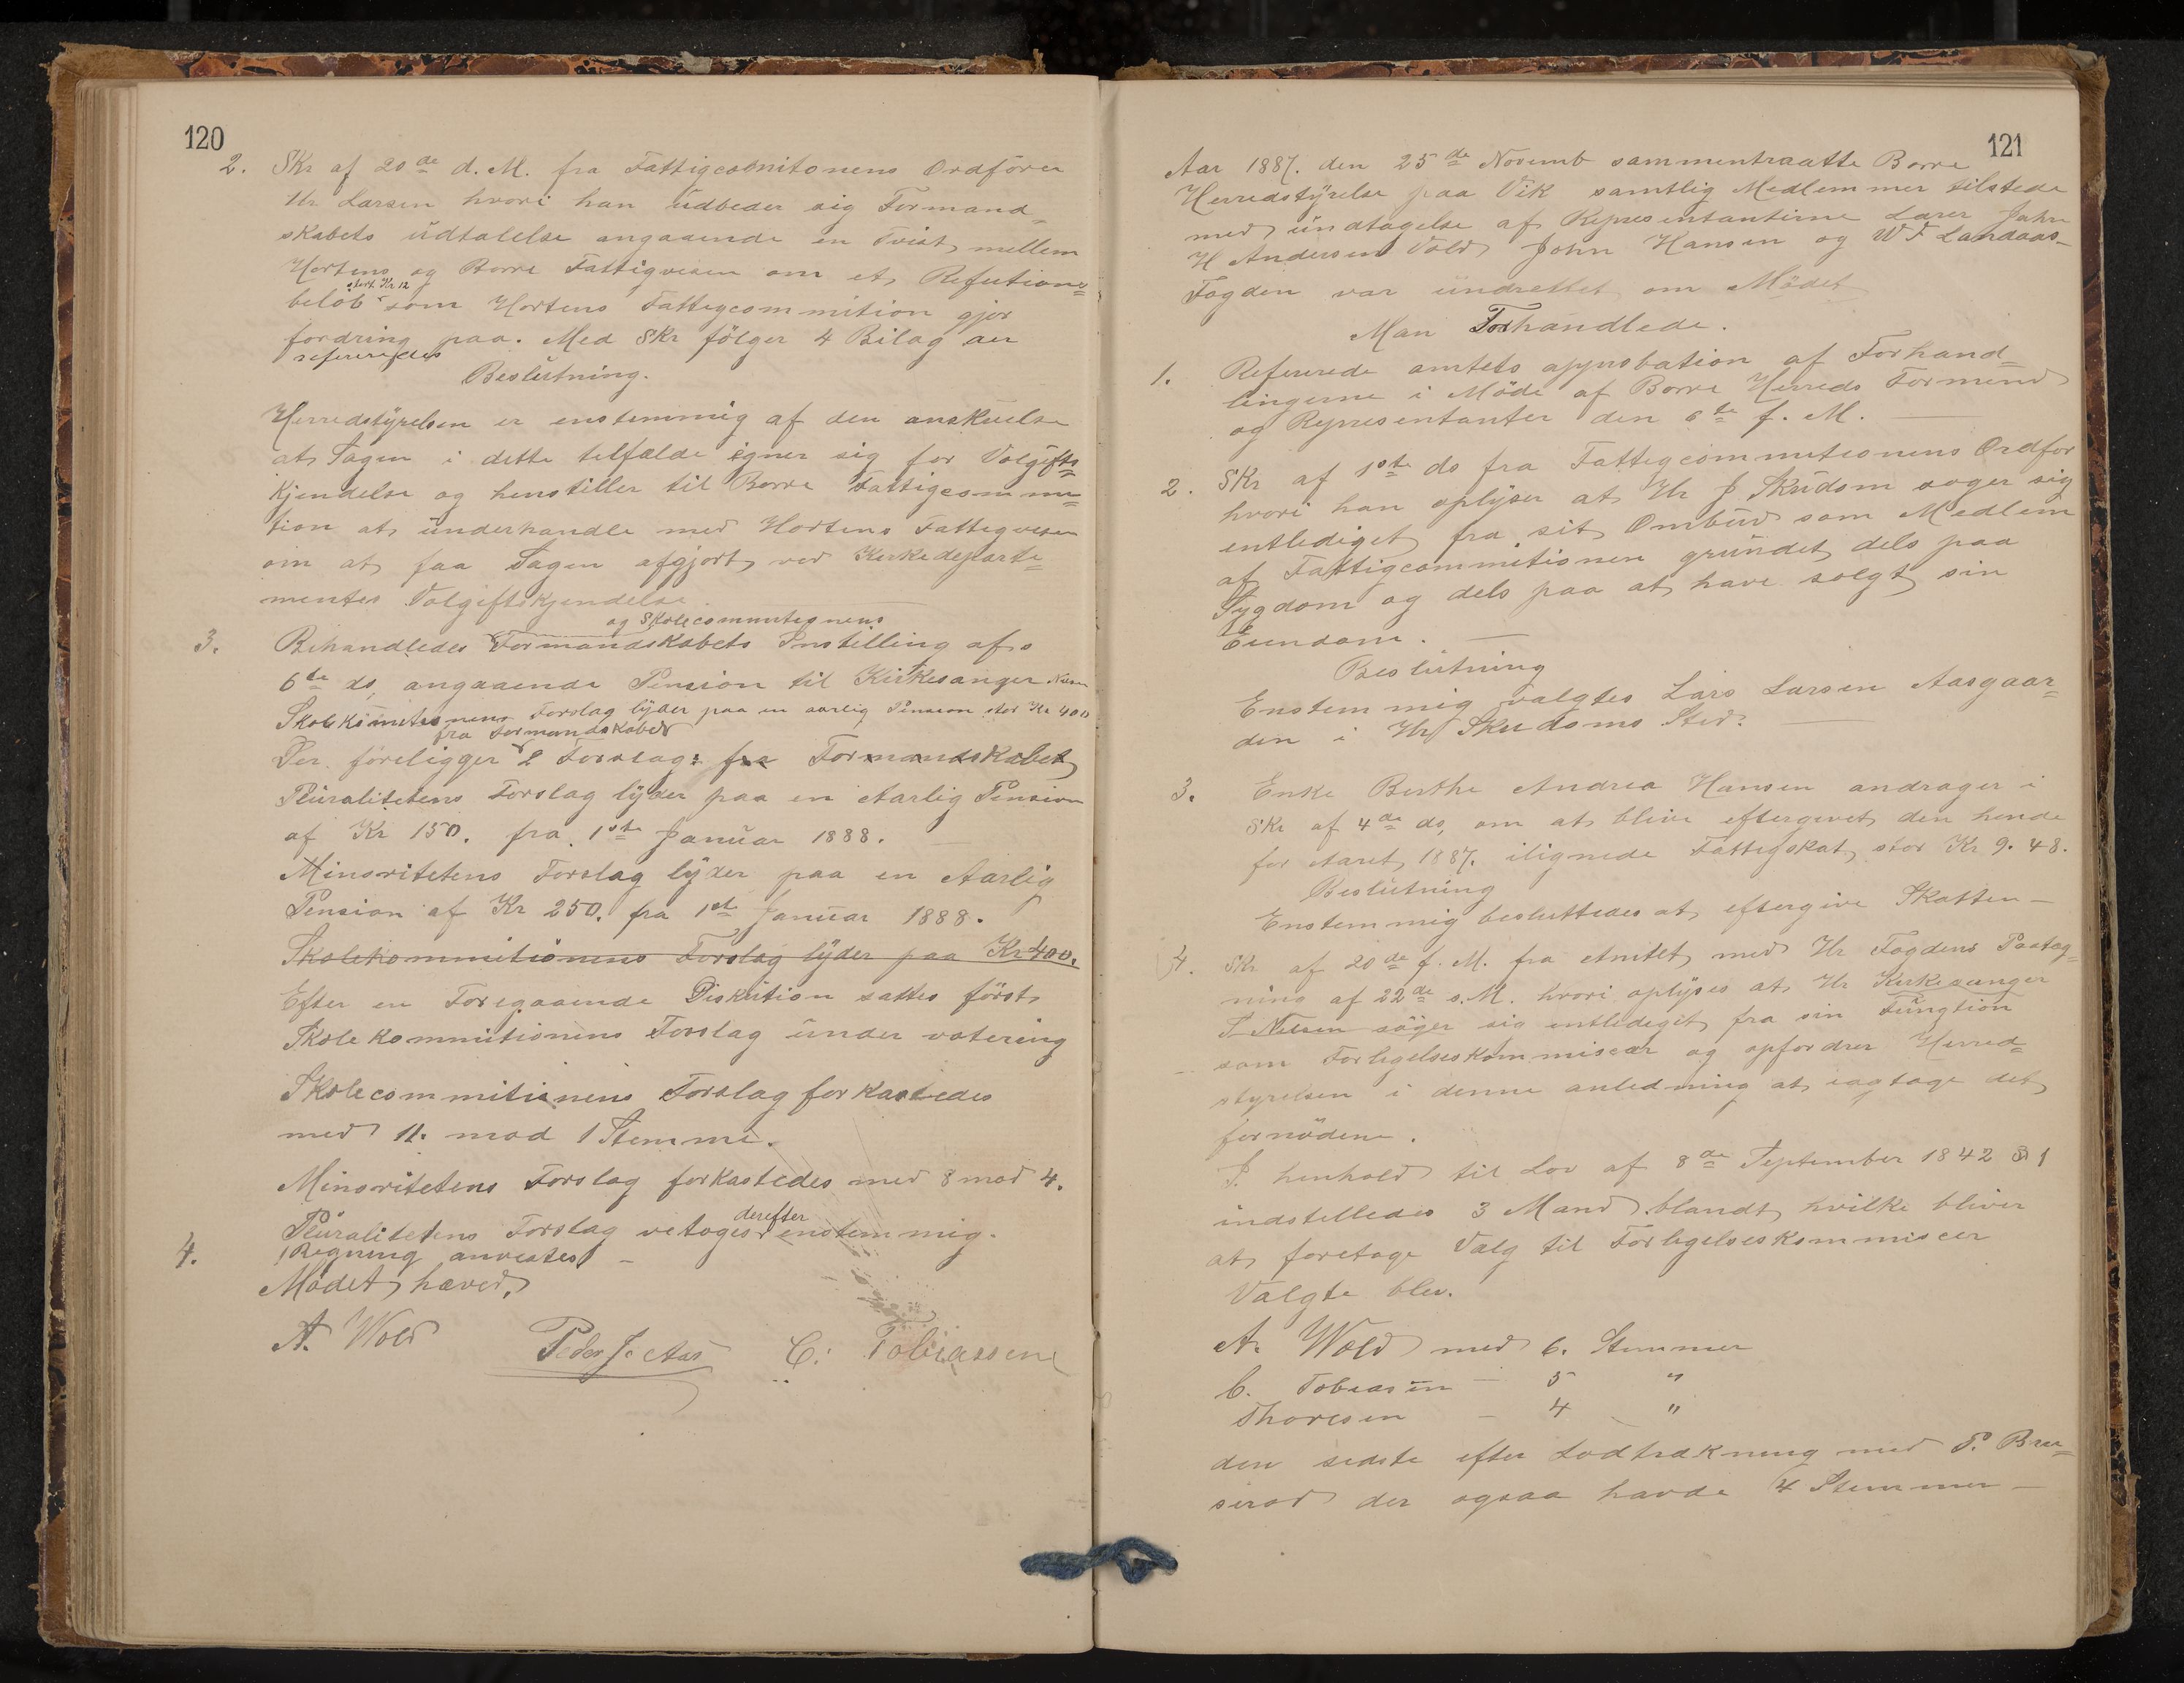 120
2. Skr af 20de d. M. fra Fattigcomitonens Ordförer
Hr. Larsen hvori han üdbeder sig Formand=
skabets üdtalelse angaaende en Tvist mellem
Hortens og Borre Fattigvesen om et Refutions=
stort Kr 12
belöb som Hortens Fattigcommition gjör
fordring paa. Med Skr fölger 4 Bilag der
refereredes
Beslütning.
Herredstÿrelsen er enstemmig af den anskuelse
at Sagen i dette telfælde egner sig for Volgifts=
Kjendelse og henstiller til Borre Fattigcommi=
tion at ünderhandle med Hortens Fattigvesen
om at faa Sagen afgjort ved Kirkedeparte=
mentes Volgiftskjendelse.
og Skolecommitionens
3. Behandledes Formandskabets Instilling af
6te ds, angaaende Pension til Kirkesanger Nilsen
Skolekomitionens Forslag lÿder paa en aarlig Pension stor Kr 400
fra Formandskabet
Der foreligger 2 Forslag: fra Formandskabet
Plüralitetens Forslag lÿder paa en Aarlig Pension
af Kr 150. fra 1ste Januar 1888.
Minoritetens Forslag lÿder paa en Aarlig
Pension af Kr 250. fra 1ste Januar 1888.
Skolekommitionens Forslag lÿder paa Kr 400.
Efter en Foregaaende Diskution sattes först
Skolekommitionens Forslag ünder votering
Skolecommitionens Forslag forkastedes
med 11. mod 1 Stemme.
Minoritetens Forslag forkastedes med 8 mod 4.
derefter
Plüralitetens Forslag vetoges enstemmig.
4. 1 Regning anvistes
Mödet hæved,
A. Wold Peder J. Aas C. Tobiassen
121
Aar 1887. den 25de Novemb sammentraatte Borre
Herredstÿrelse paa Vik samtlig Medlemmer tilstede
med ündtagelse af Representantirne Lærer Jahn
H Andersen Vold John Hansen og W F Landaas-
Fogden var ündrettet om Mödet
Man Forhandlede.
1. Refererede amtets approbation af Forhand=
lingerne i Möde af Borre Herreds Formend
og Representanter den 6te f. M.
2. Skr af 1ste ds fra Fattigcommitionens Ordför
hvori han oplÿser at Hr J Sküdom söger sig
entlediget fra sit Ombüd som Medlem
af Fattigcommitionen gründet dels paa
Sygdom og dels paa at have solgt sin
Eiendom.
Beslütning
Enstemmig valgtes Lars Larsen Aasgaar=
den i Hr Skudoms Sted.
3. Enke Berthe Andrea Hansen andrager i
Skr af 4de ds, om at blive eftergivet den hende
for Aaret 1887. ilignede Fattigskat stor Kr 9.48.
Beslütning
Enstemmig besluttedes at eftergive Skatten-
4. Skr af 20de f. M. fra Amtet med Hr Fogdens Paateg=
ning af 22de s.M. hvori oplÿses at Hr Kirkesanger
T Nilsen söger sig entlediget fra sin Füngtion
som Forligelseskommiscær og opfordrer Herred=
styrelsen i denne anledning at iagtage det
fornödene.
I henhold til Lov af 8de September 1842 § 1
indstilledes 3 Mand blandt hvilke bliver
at foretage Valg til Forligelseskommiscer
Valgte blev.
A. Wold med 6. Stemmer
C. Tobiasen - 5 "
Thoresen - 4 "
den sidste efter Lodtrækning med P. Bru=
seröd der ogsaa havde 4 Stemmer-